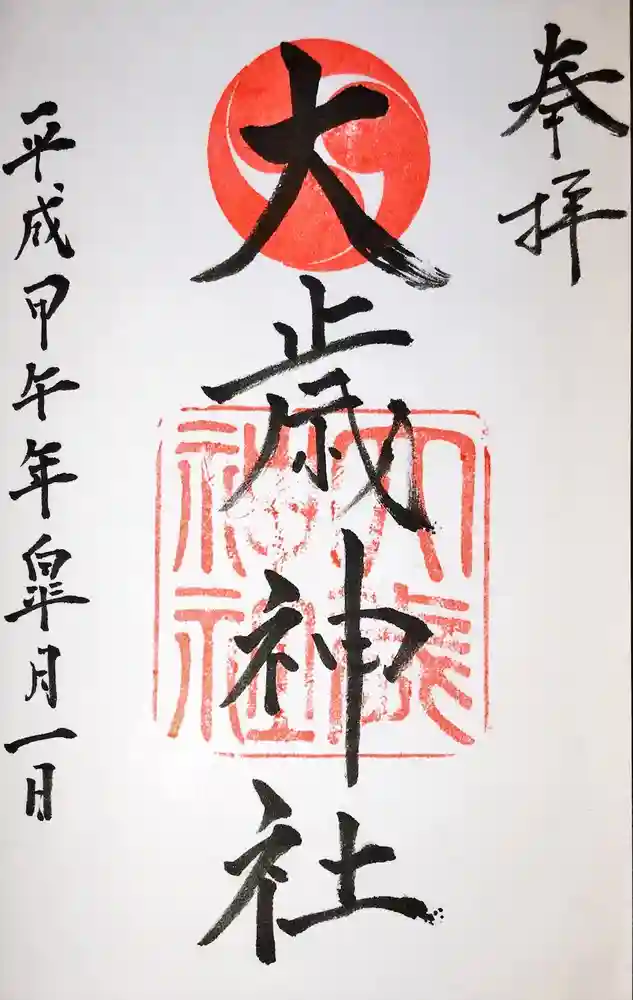 奉拝
大歳神社
大歳神社
平成甲午年皐月一日